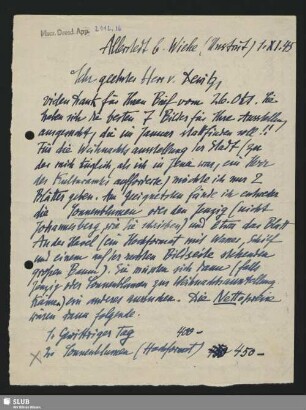 Msc. Dresd. App. 2112, 16
Allerstedt b. Wiehe, (Unstrut) 1. XI. 45
Sehr geehrter Herr v.
vielen Dank für Ihren Brief vom 26. Okt. Sie
haben wie die besten 7 Bilder für Ihre Ausstellung
ausgesucht, die im Januar stattfinden soll!!
Für die Weihnachtsausstellung der Stadt, (zu
der mich kürzlich, als ich in Jena war, ein Herr
des Kulturamtes aufforderte) möchte ich nur 2
Blätter geben. Am geeignetsten fände ich entweder
die Sonnenblumen oder den Jenzig (nicht
Johannisberg, wie Sie schreiben) und etwa das Blatt
An der Havel (ein Hochformat mit
und einem auf der rechten Bildseite stehenden
großen Baum). Sie müssten sich dann (falls
Jenzig oder Sonnenblumen zur Weihnachtsausstellung
kämen) ein anderes aussuchen. Die Nettopreise
wären dann folgende:
1. Gewittriger Tag 400 -
2. Sonnenblumen (Hochformat) 450 -